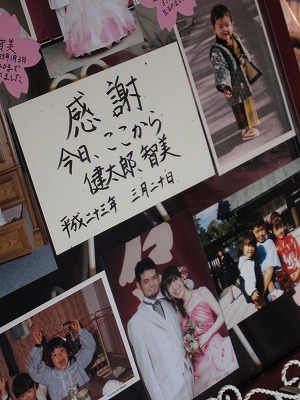 智美
感謝
今日、ここから
健太郎、智美
平成二十三年 三月二十日